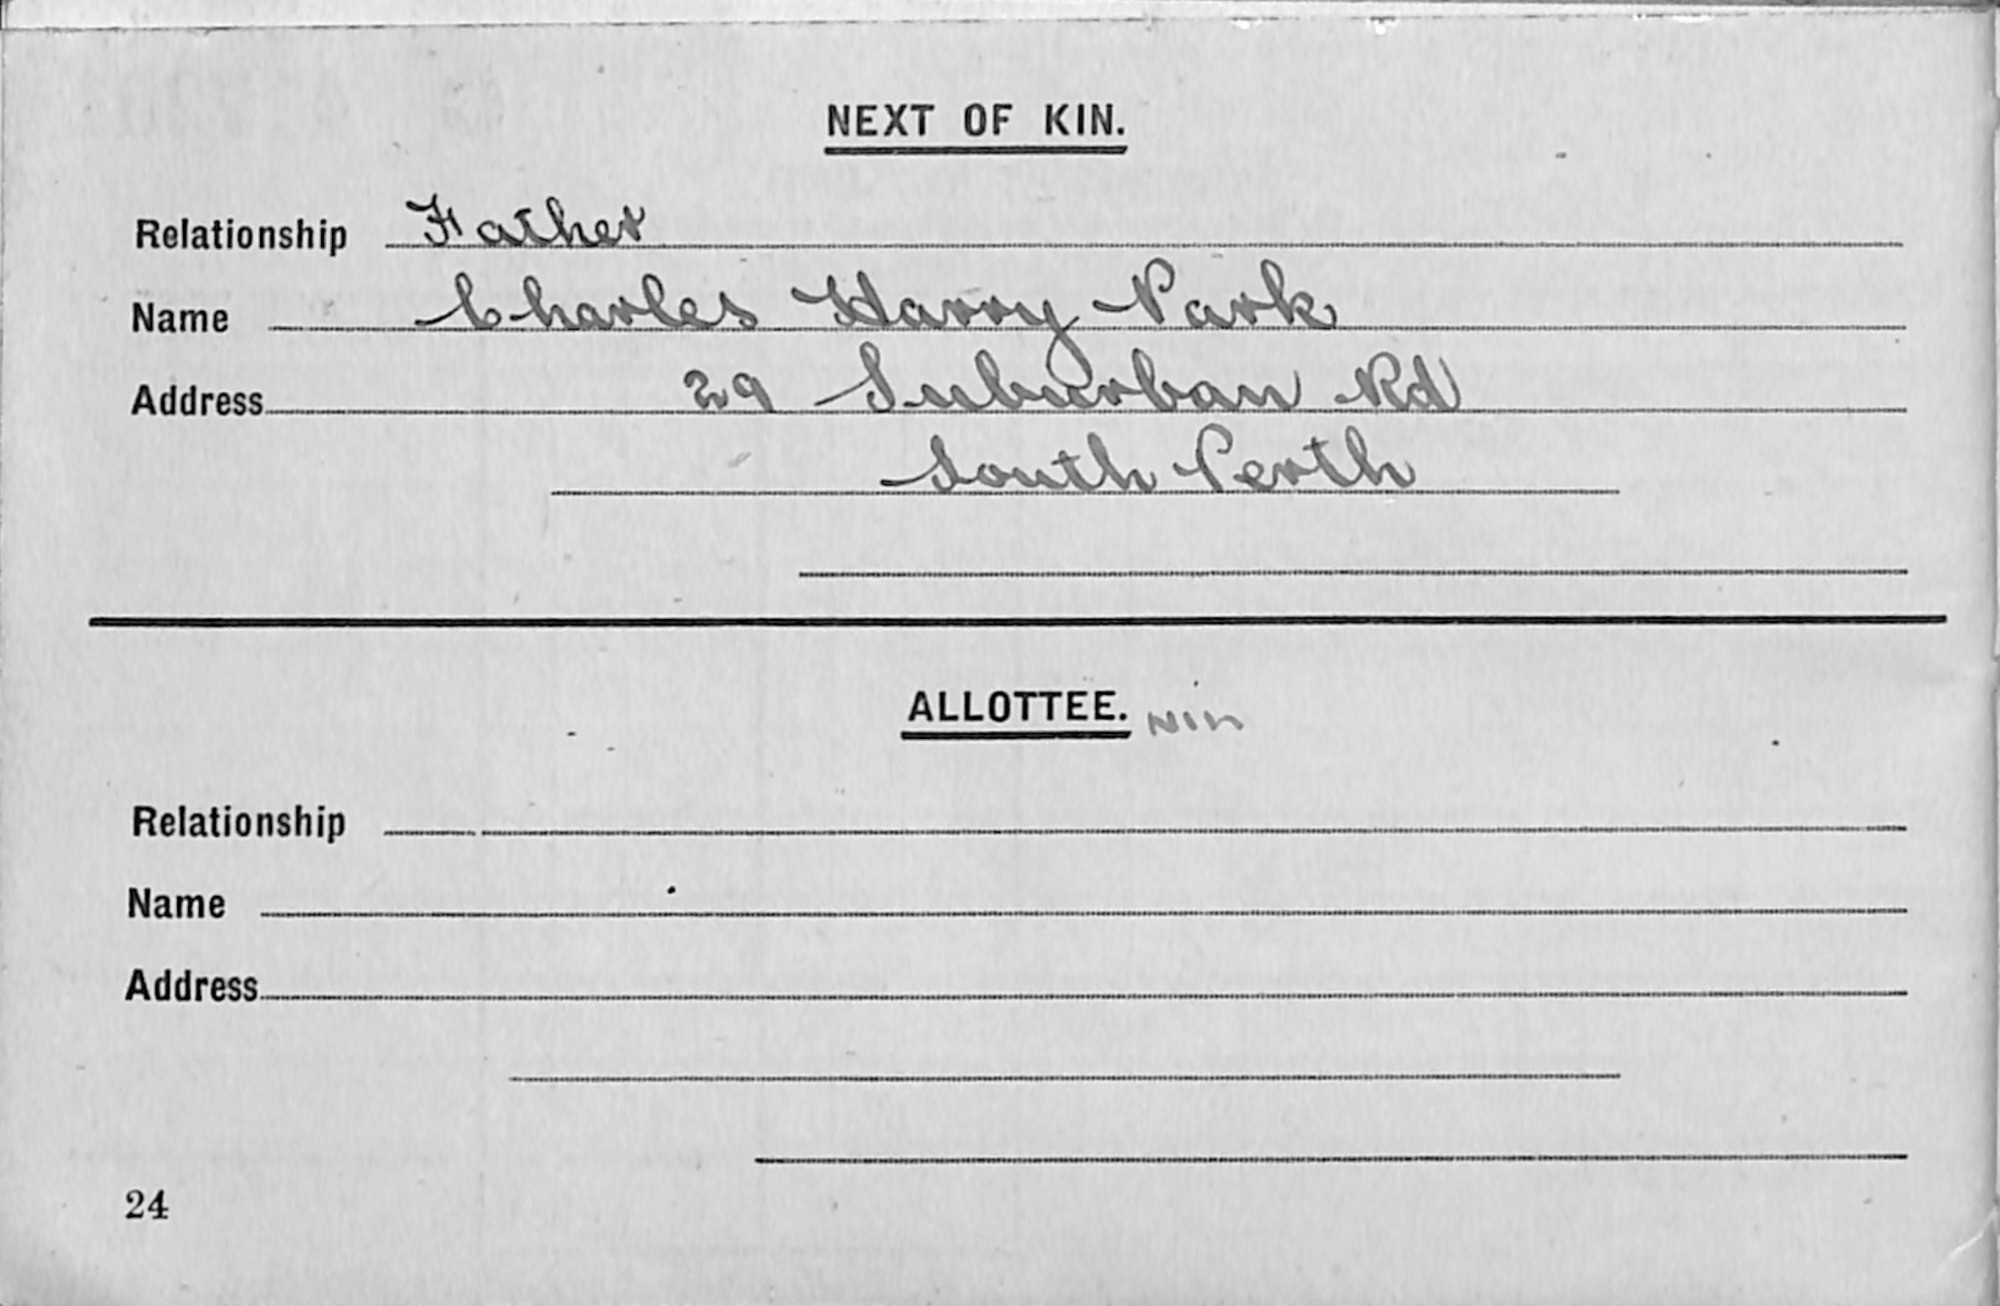 NEXT OF KIN.
Relationship Father
Name Charles Harry Park
Address 29 Suburban Rd
South Perth
ALLOTTEE.
Relationship
Name
Address
24